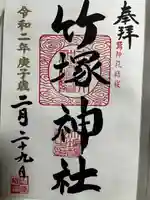 奉拝
竹塚神社
令和二年庚子歳
二月二十九日